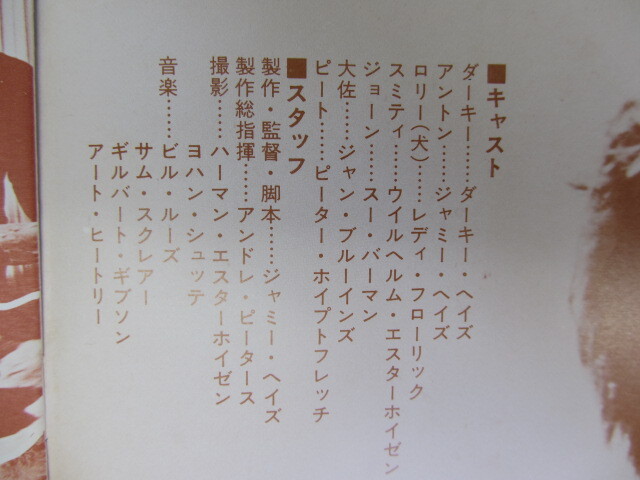 ■キャスト
ダーキー……ダーキー・ヘイズ
アントン……ジャミー・ヘイズ
ロリー(犬)……レディ・フローリック
スミティ……ウイルヘルム・エスターホイゼン
ジョーン……スー・バーマン
大佐……ジャン・ブルーインズ
ピート……ピーター・ホイプトフレッチ
■スタッフ
製作・監督・脚本……ジャミー・ヘイズ
製作総指揮……アンドレ・ピータース
撮影……ハーマン・エスターホイゼン
ヨハン・シュッテ
音楽……ビル・ルーズ
サム・スクレアー
ギルバート・ギブソン
アート・ヒートリー